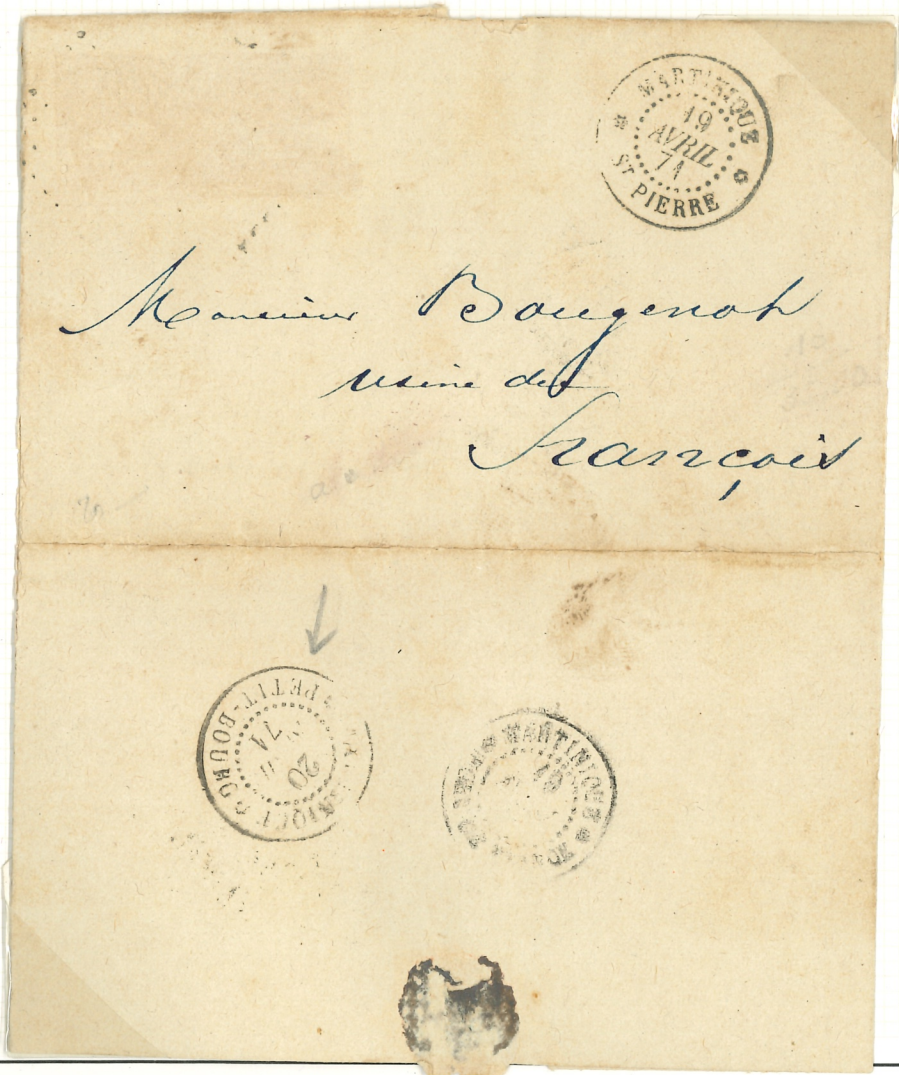 MARTINIQUE
19
AVRIL
71
ST PIERRE
Monsieur Bougenot
usine du
François
PETIT-BOURG
20
71
MARTINIQUE
19